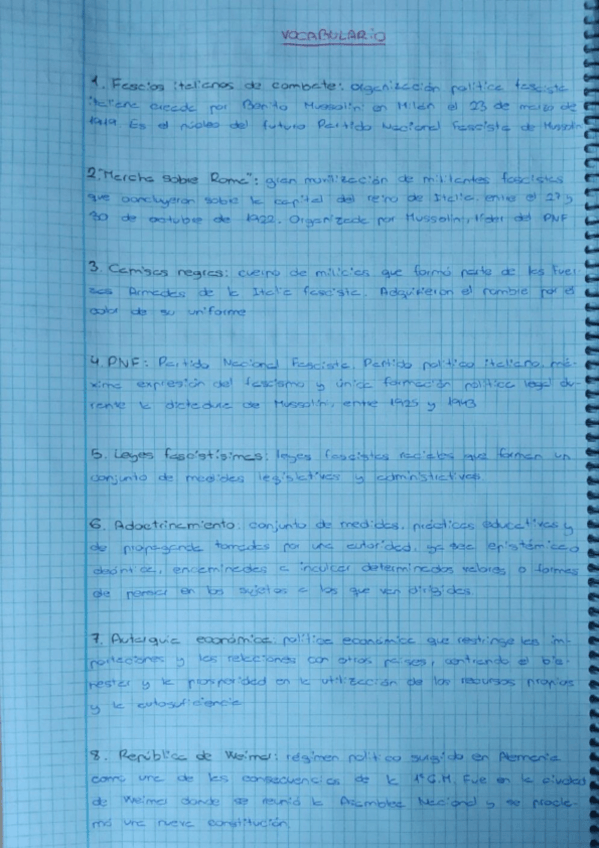 VOCABULARIO
1. Fascios italianos de combate: organización política fascista
italiana creada por Benito Mussolini en Milán el 23 de marzo de
1919. Es el núcleo del futuro Partido Nacional Fascista de Mussolini
2. "Marcha sobre Roma": gran movilización de militantes fascistas
que concluyeron sobre la capital del reino de Italia, entre el 27 y
30 de octubre de 1922. Organizada por Mussolini, líder del PNF
3. Camisas negras: cuerpo de milicias que formó parte de las fuer-
zas Armadas de la Italia fascista. Adquirieron el nombre por el
color de su uniforme
4. PNF: Partido Nacional Fascista. Partido político italiano, má-
xima expresión del fascismo y única formación política legal du-
rante la dictadura de Mussolini, entre 1925 y 1943
5. Leyes fascistísimas: leyes fascistas raciales que forman un
conjunto de medidas legislativas y administrativas.
6. Adoctrinamiento: conjunto de medidas, prácticas educativas y
de propaganda tomadas por una autoridad, ya sea epistémica o
deóntica, encaminadas a inculcar determinados valores o formas
de pensar en los sujetos a los que van dirigidas.
7. Autarquía económica: política económica que restringe las im-
portaciones y las relaciones con otros países, confiando el bie-
nestar y la prosperidad en la utilización de los recursos propios
y la autosuficiencia
8. República de Weimar: régimen político surgido en Alemania
como una de las consecuencias de la 1ª G.M. Fue en la ciudad
de Weimar donde se reunió la Asamblea Nacional y se procla-
mó una nueva constitución.